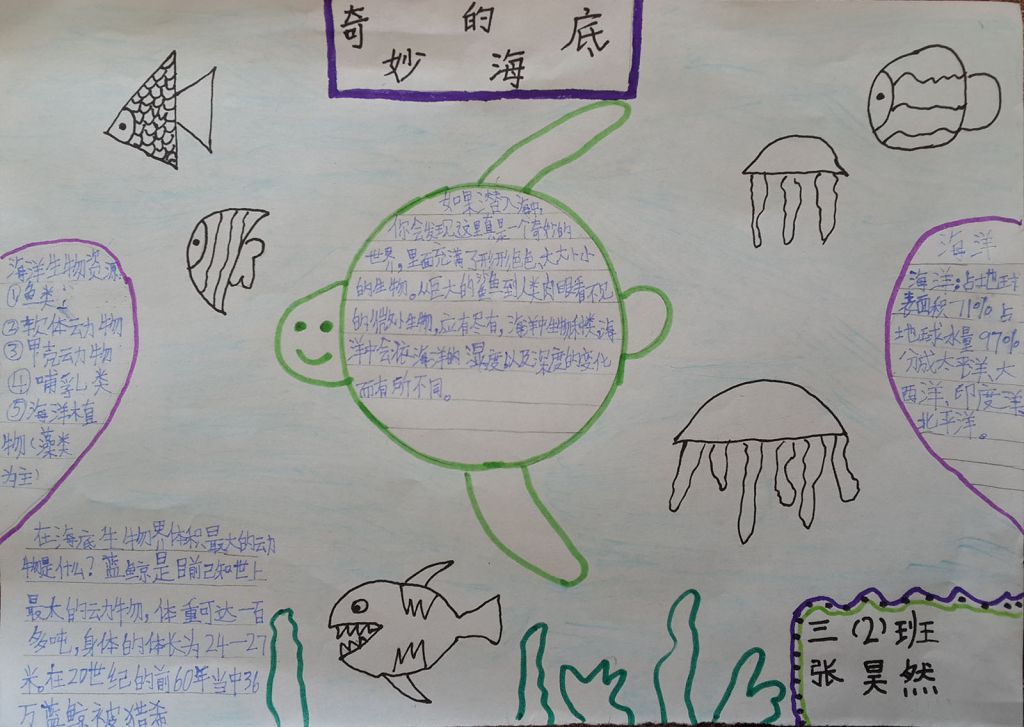 奇妙的海底
如果潜入海中，
你会发现这里真是一个奇妙的
世界，里面充满了形形色色、大大小小
的生物。从巨大的鲨鱼到人类肉眼看不见
的微小生物，应有尽有，海洋中生物种类，海
洋中会依海洋的温度以及深度的变化
而有所不同。
海洋生物资源
①鱼类
②软体动物
③甲壳动物
④哺乳类
⑤海洋植
物（藻类
为主）
在海底生物界体积最大的动
物是什么？蓝鲸是目前已知世上
最大的动物，体重可达一百
多吨，身体的体长为24—27
米。在20世纪的前60年当中36
万蓝鲸被猎杀
海洋
海洋：占地球
表面积71%占
地球水量97%
分成太平洋、大
西洋、印度洋
北平洋。
三（2）班
张昊然